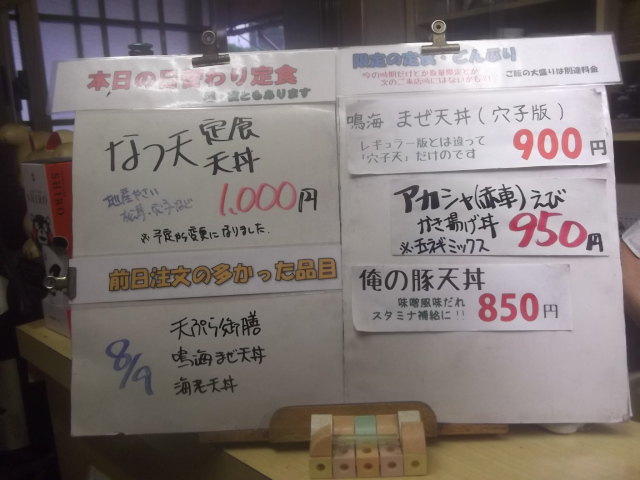 本日の日替わり定食
昼・夜ともあります
なつ天 定食
天丼
地産やさい
1,000円
※予定から変更になりました.
前日注文の多かった品目
8/9
天ぷら御膳
鳴海まぜ天丼
海老天丼
限定の定食・どんぶり
ご飯の大盛りは別途料金
鳴海 まぜ天丼(穴子版)
レギュラー版とは違って
「穴子天」だけのです
900円
アカシャ(赤車)えび
かき揚げ丼
※玉ネギミックス
950円
俺の豚天丼
味噌風味だれ
スタミナ補給に!!
850円